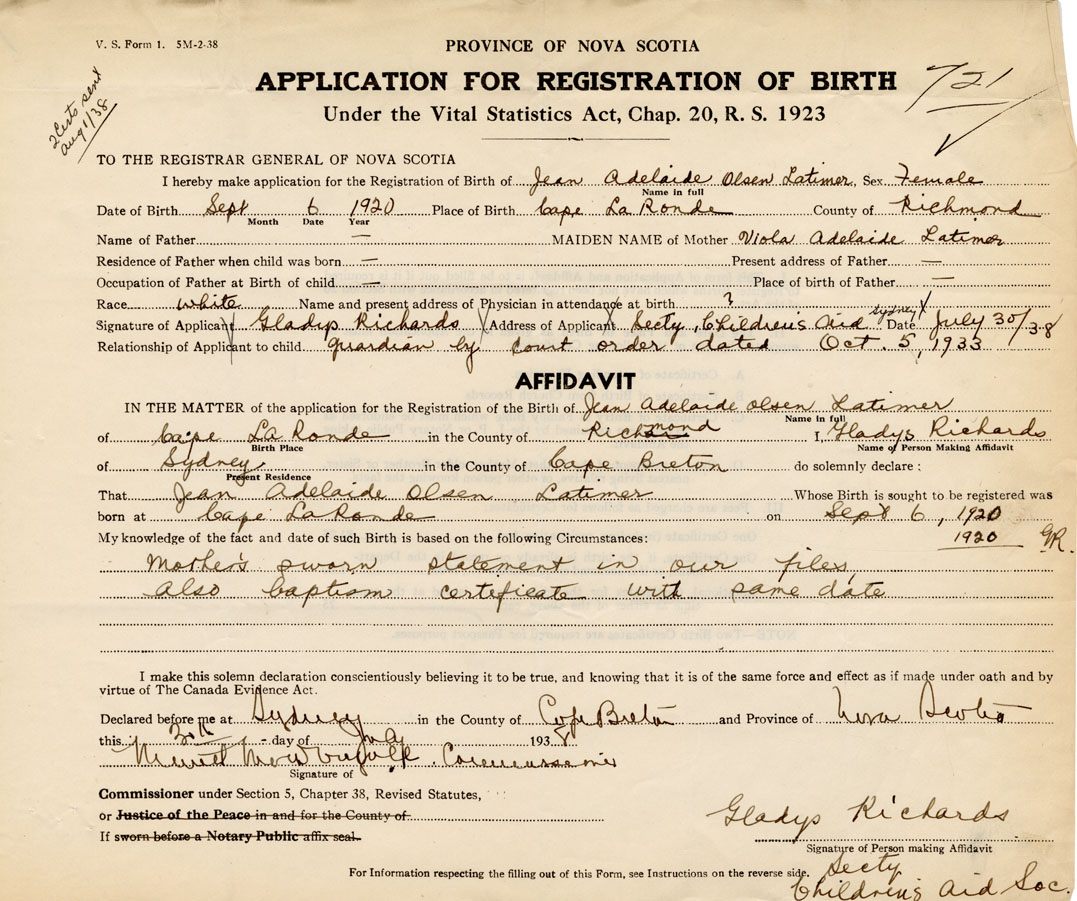 V. S. Form 1. 5M-2-38
PROVINCE OF NOVA SCOTIA
APPLICATION FOR REGISTRATION OF BIRTH
721
Under the Vital Statistics Act, Chap. 20, R. S. 1923
2 Certs sent
Aug 1/38
TO THE REGISTRAR GENERAL OF NOVA SCOTIA
I hereby make application for the Registration of Birth of Jean Adelaide Olsen Latimer, Sex Female
Name in full
Date of Birth Sept 6 1920 Place of Birth Cape La Ronde County of Richmond
Month Date Year
Name of Father — MAIDEN NAME of Mother Viola Adelaide Latimer
Residence of Father when child was born — Present address of Father —
Occupation of Father at Birth of child — Place of birth of Father —
Race white Name and present address of Physician in attendance at birth ?
Signature of Applicant Gladys Richards Address of Applicant Secty, Children's Aid Sydney Date July 30/38
Relationship of Applicant to child guardian by court order dated Oct. 5, 1933
AFFIDAVIT
IN THE MATTER of the application for the Registration of the Birth of Jean Adelaide Olsen Latimer
Name in full
of Cape La Ronde in the County of Richmond I, Gladys Richards
Birth Place Name of Person Making Affidavit
of Sydney in the County of Cape Breton do solemnly declare :
Present Residence
That Jean Adelaide Olsen Latimer Whose Birth is sought to be registered was
born at Cape La Ronde on Sept 6, 1920
My knowledge of the fact and date of such Birth is based on the following Circumstances: 1920 GR.
Mother's sworn statement in our files,
also baptism certificate with same date
NOTE—Two Birth Certificates are required for Passport purposes.
I make this solemn declaration conscientiously believing it to be true, and knowing that it is of the same force and effect as if made under oath and by
virtue of The Canada Evidence Act.
Declared before me at Sydney in the County of Cape Breton and Province of Nova Scotia
this day of July 1938
Commissioner
Signature of
Commissioner under Section 5, Chapter 38, Revised Statutes,
or Justice of the Peace in and for the County of
If sworn before a Notary Public affix seal.
Gladys Richards
Signature of Person making Affidavit
For Information respecting the filling out of this Form, see Instructions on the reverse side.
Secty
Children's Aid Soc.